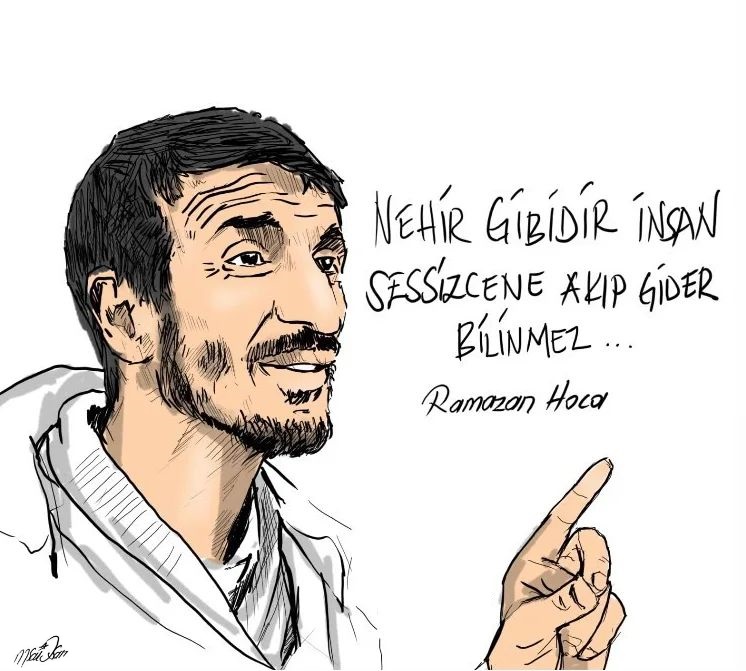 NEHİR GİBİDİR İNSAN
SESSİZCENE AKIP GİDER
BİLİNMEZ ...
Ramazan Hoca